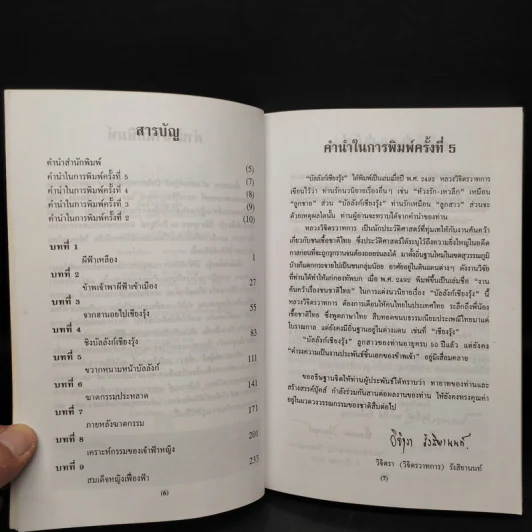 สารบัญ
คำนำสำนักพิมพ์ (5)
คำนำในการพิมพ์ครั้งที่ 5 (7)
คำนำในการพิมพ์ครั้งที่ 4 (8)
คำนำในการพิมพ์ครั้งที่ 3 (9)
คำนำในการพิมพ์ครั้งที่ 2 (10)
บทที่ 1
ผีฟ้าเหลือง 1
บทที่ 2
ข้าพเจ้าพาผีฟ้าเข้าเมือง 27
บทที่ 3
จากฮานอยไปเชียงรุ้ง 55
บทที่ 4
ชิงบัลลังก์เชียงรุ้ง 83
บทที่ 5
ขวากหนามหน้าบัลลังก์ 111
บทที่ 6
ฆาตกรรมประหลาด 141
บทที่ 7
ภายหลังฆาตกรรม 171
บทที่ 8
เคราะห์กรรมของเจ้าฟ้าหญิง 201
บทที่ 9
สมเด็จหญิงเฟื่องฟ้า 233
(6)
คำนำในการพิมพ์ครั้งที่ 5
"บัลลังก์เชียงรุ้ง" ได้พิมพ์เป็นเล่มเมื่อปี พ.ศ. 2492 หลวงวิจิตรวาทการ
เขียนไว้ว่า ท่านรักนวนิยายเรื่องอื่นๆ เช่น "ห้วงรัก-เหวลึก" เหมือน
"ลูกชาย" ส่วน "บัลลังก์เชียงรุ้ง" ท่านรักเหมือน "ลูกสาว" ส่วนจะ
ด้วยเหตุผลใดนั้น ท่านผู้อ่านจะทราบได้จากคำนำของท่าน
หลวงวิจิตรวาทการ เป็นนักประวัติศาสตร์ที่ทุ่มเทให้กับงานค้นคว้า
เกี่ยวกับชนเชื้อชาติไทย ซึ่งประวัติศาสตร์ได้ระบุไว้ถึงความยิ่งใหญ่ในอดีต
กาลก่อนที่จะถูกรุกรานจนต้องถอยร่นลงใต้ มาตั้งถิ่นฐานใหม่ในเขตสุวรรณภูมิ
บ้างก็แตกกระจายไปเป็นชนกลุ่มน้อย อาศัยอยู่ในดินแดนต่างๆ ดังงานวิจัย
ที่ท่านได้ทำให้แก่กองทัพบก เมื่อ พ.ศ. 2499 พิมพ์ขึ้นเป็นเล่มชื่อ "งาน
ค้นคว้าเรื่องชนชาติไทย" ในการแต่งนวนิยายเรื่อง "บัลลังก์เชียงรุ้ง" นี้
หลวงวิจิตรวาทการ ต้องการเตือนให้คนไทยในประเทศไทย ระลึกถึงพี่น้อง
เชื้อชาติไทย ซึ่งพูดภาษาไทย สืบทอดขนบธรรมเนียมประเพณีไทยมาแต่
โบราณกาล แต่ยังคงมีถิ่นฐานอยู่ในต่างแดน เช่นที่ "เชียงรุ้ง"
"บัลลังก์เชียงรุ้ง" ลูกสาวของท่านอายุครบ 50 ปีแล้ว แต่ยังคง
"ดำรงความเป็นงานประพันธ์ชิ้นเอกของข้าพเจ้า" อยู่มิเสื่อมคลาย
ขออธิษฐานจิตให้ท่านผู้ประพันธ์ได้ทราบว่า ทายาทของท่านและ
สร้างสรรค์บุ๊คส์ กำลังร่วมกันสานต่อผลงานของท่าน ให้ยังคงทรงคุณค่า
อยู่ในแวดวงวรรณกรรมของชาติสืบต่อไป
วิจิตรา รังสิยานนท์
วิจิตรา (วิจิตรวาทการ) รังสิยานนท์
(7)